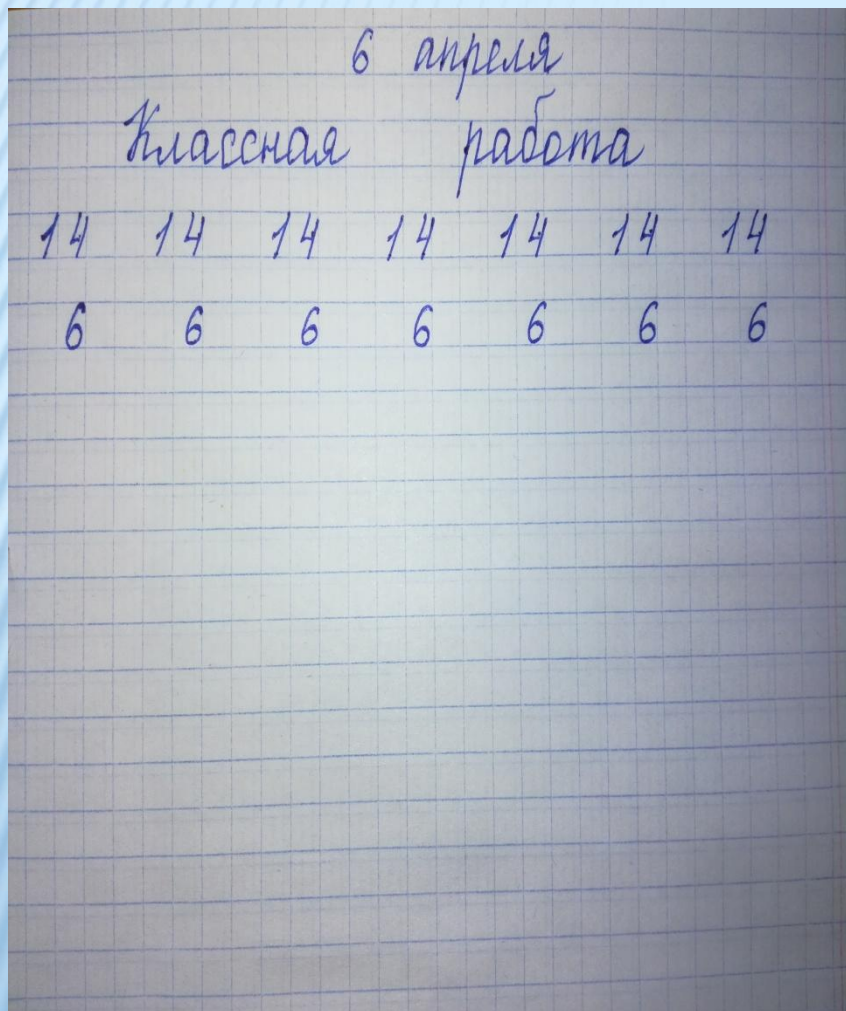 6 апреля
Классная работа
14 14 14 14 14 14 14
6 6 6 6 6 6 6